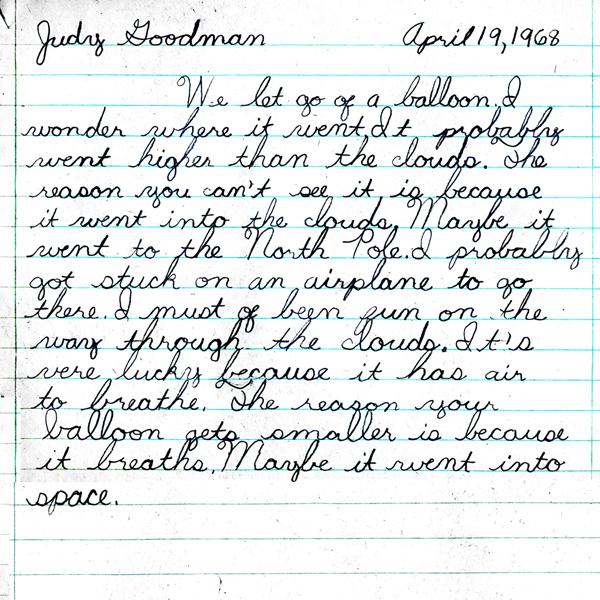 Judy Goodman April 19, 1968
We let go of a balloon. I
wonder where it went. It probably
went higher than the clouds. The
reason you can't see it is because
it went into the clouds. Maybe it
went to the North Pole. I probably
got stuck on an airplane to go
there. I must of been fun on the
way through the clouds. It's
vere lucky because it has air
to breathe. The reason your
balloon gets smaller is because
it breaths. Maybe it went into
space.